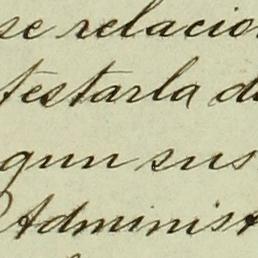 se relacio
testarla d
gun sus
Administ